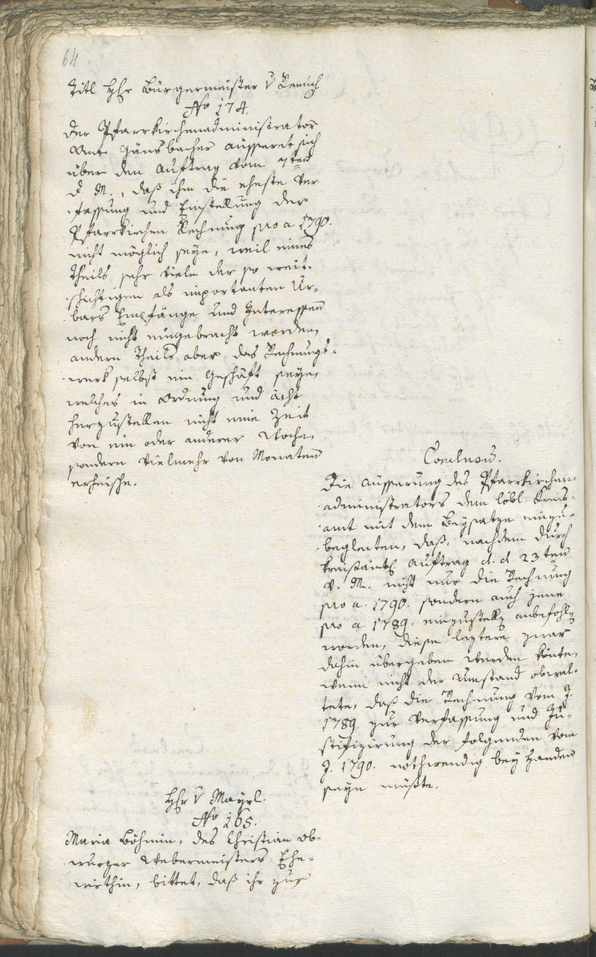 64
Titl Hhr Bürgermeister v
No 174.
Der Pfarrkirchenadministrator
Ant. Gänsbacher äussert sich
über den Auftrag vom 7ten
d. M., daß ihm die eheste Ver
fassung und Einstellung der
Pfarrkirchen Rechnung pro a. 1790.
nicht möglich seye, weil eines
Theils sehr viele der so weit-
schichtigen als importanten Ur-
bars Empfänge und Interessen
noch nicht eingebracht worden,
andern Theils aber das Rechnungs-
werk selbst ein Geschäft seye,
welches in Ordnung und ächt
herzustellen nicht eine Zeit
von ein oder anderer Woche,
sondern vielmehr von Monaten
erheische.
Conclusum.
Die Äusserung des Pfarrkirchen-
administrators dem löbl. Kreis-
amt mit dem Beysatze einzu-
begleiten, daß, nachdem durch
kreisämtl. Auftrag d. d. 23ten
v. M. nicht nur die Rechnung
pro a. 1790. sondern auch jene
pro a. 1789. einzustellen anbefohlen
worden, diese letztere zwar
dahin übergeben werden könte,
wenn nicht der Umstand obwal-
tete, daß die Rechnung vom J.
1789. zur Verfassung und Ju-
stifizirung der folgenden vom
J. 1790. nothwendig bey Handen
seyn müßte.
Hhr v Mayrl.
No 165.
Maria Böhmin, des Christian Ob-
wurzer Webermeisters Ehe-
wirthin, bittet, daß ihr zur